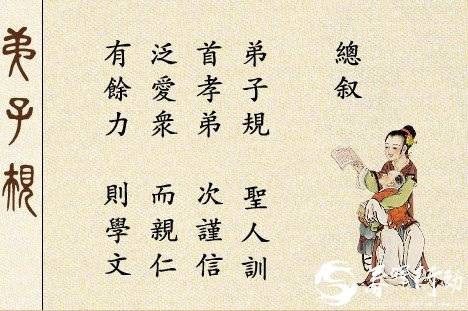 弟子規
總叙
弟子規 聖人訓
首孝弟 次謹信
泛愛衆 而親仁
有餘力 則學文